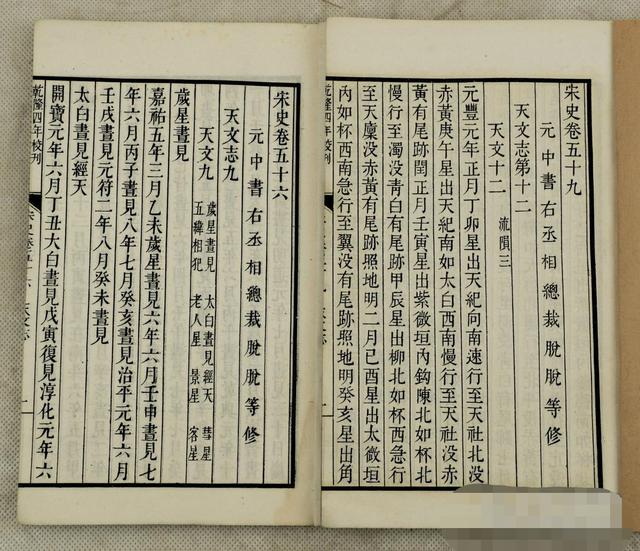 宋史卷五十九
元中書右丞相總裁脫脫等修
天文志第十二
天文十二 流隕三
元豐元年正月丁卯星出天紀向南速行至天社北没
赤黃庚午星出天紀南如太白西南慢行至天社没赤
黃有尾跡閏正月壬寅星出紫微垣內鈎陳北如杯北
慢行至濁没青白有尾跡甲辰星出柳北如杯西急行
至天廩没赤黃有尾跡照地明二月己酉星出太微垣
內如杯西南急行至翼没有尾跡照地明癸亥星出角
乾隆四年校刊
宋史卷五十六
元中書右丞相總裁脫脫等修
天文志九
天文九 歲星晝見 太白晝見經天 彗星
五緯相犯 老人星 景星 客星
歲星晝見
嘉祐五年三月乙未歲星晝見六年六月壬申晝見七
年六月丙子晝見八年七月癸亥晝見治平元年六月
壬戌晝見元符二年八月癸未晝見
太白晝見經天
開寶元年六月丁丑大白晝見戊寅復見淳化元年六
乾隆四年校刊
宋史卷五十六 天文志 一